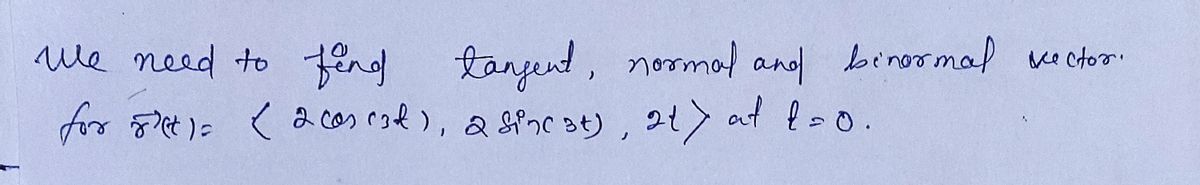 We need to find tangent, normal and binormal vector.
for r⃗(t) = < 2 cos (3t), 2 sin(3t), 2t > at t = 0.